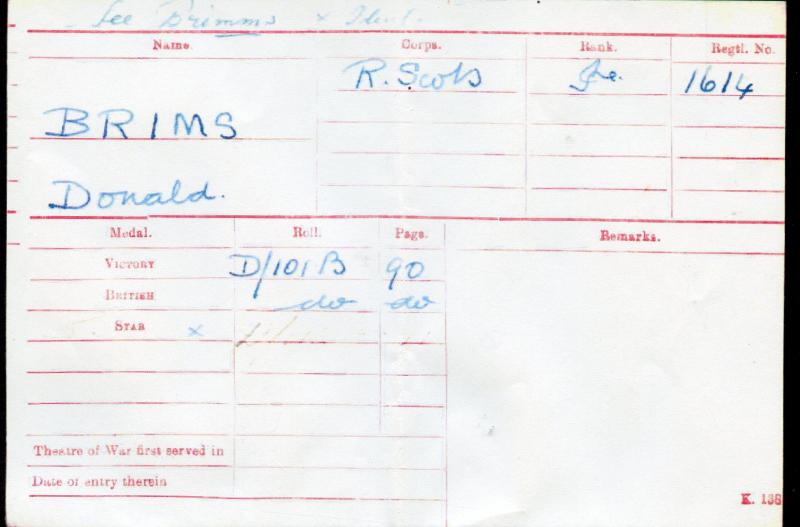 See Brimms x Ident.
Name. Corps. Rank. Regtl. No.
R. Scots Pte. 1614
BRIMS
Donald.
Medal. Roll. Page. Remarks.
VICTORY D/101B 90
BRITISH do do
STAR x
Theatre of War first served in
Date of entry therein
K. 138